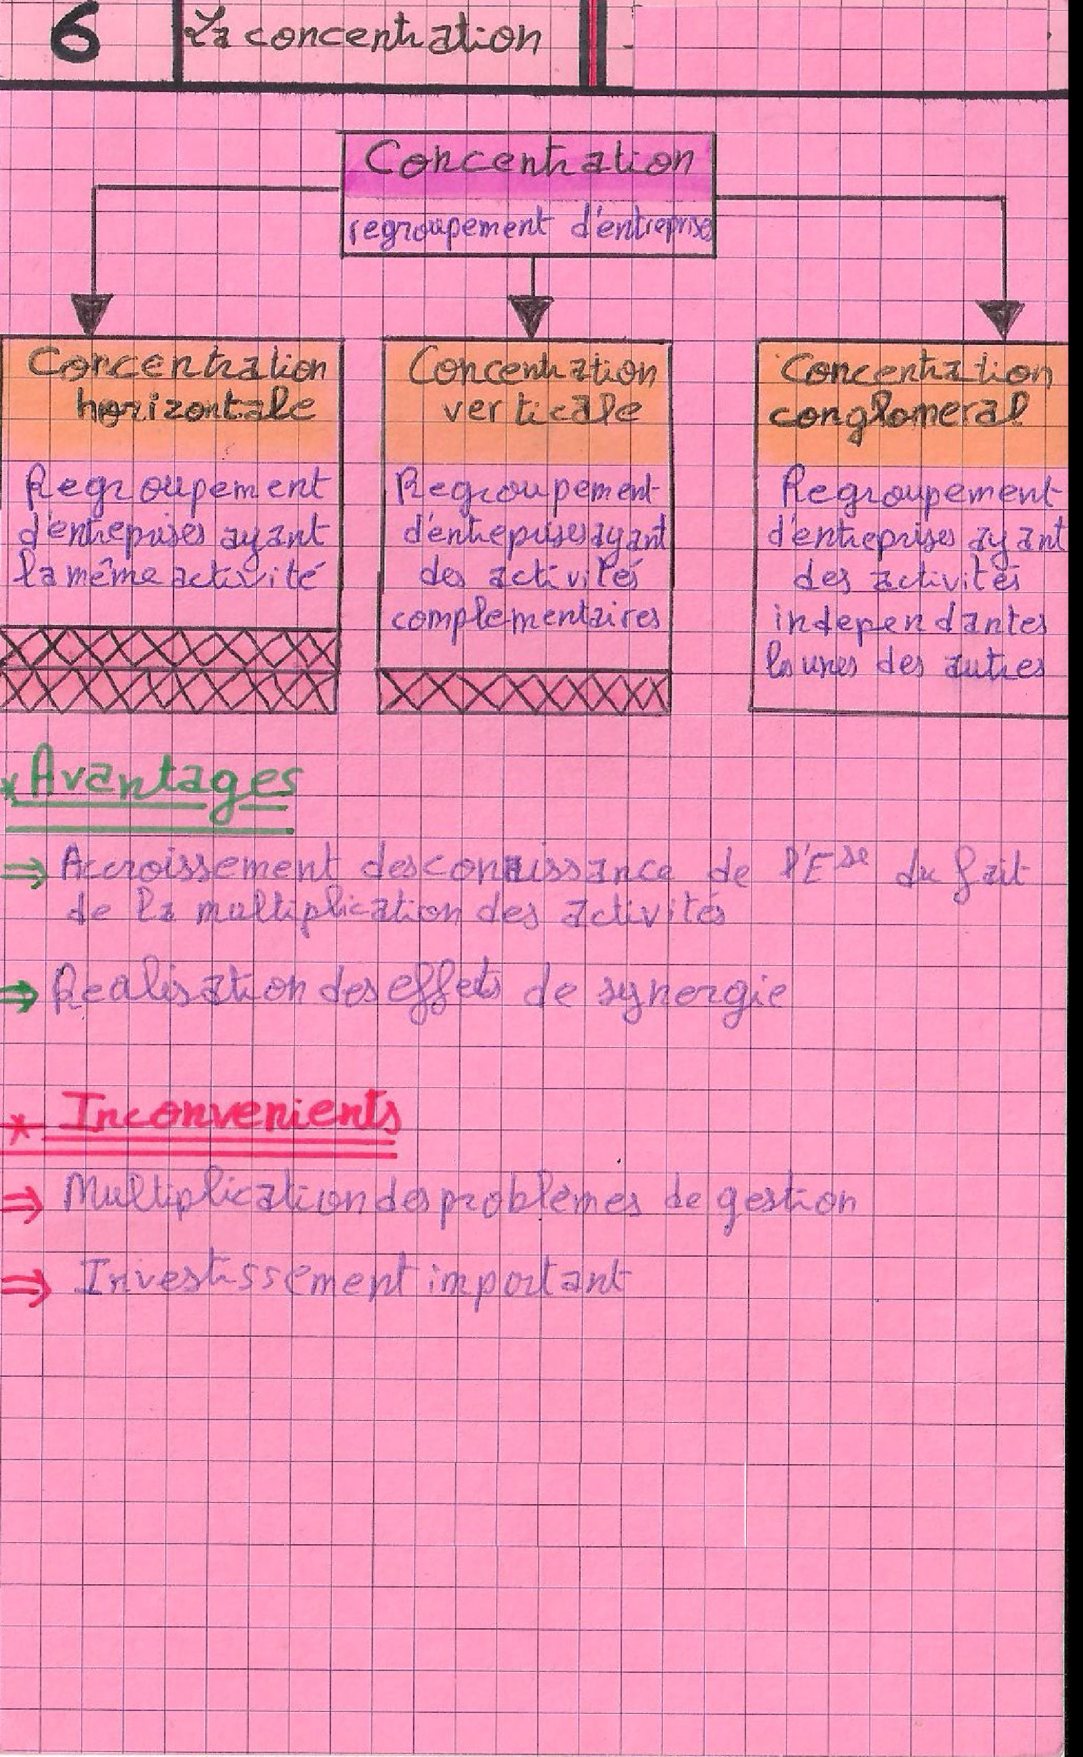 6 La concentration
Concentration
regroupement d'entreprise
Concentration
horizontale
Regroupement
d'entreprises ayant
la même activité
Concentration
verticale
Regroupement
d'entreprises ayant
des activités
complementaires
Concentration
conglomeral
Regroupement
d'entreprises ayant
des activités
independantes
les unes des autres
* Avantages
⇒ Accroissement des connaissance de l'Ese du fait
de la multiplication des activités
⇒ Realisation des effets de synergie
* Inconvenients
⇒ Multiplication des problèmes de gestion
⇒ Investissement important